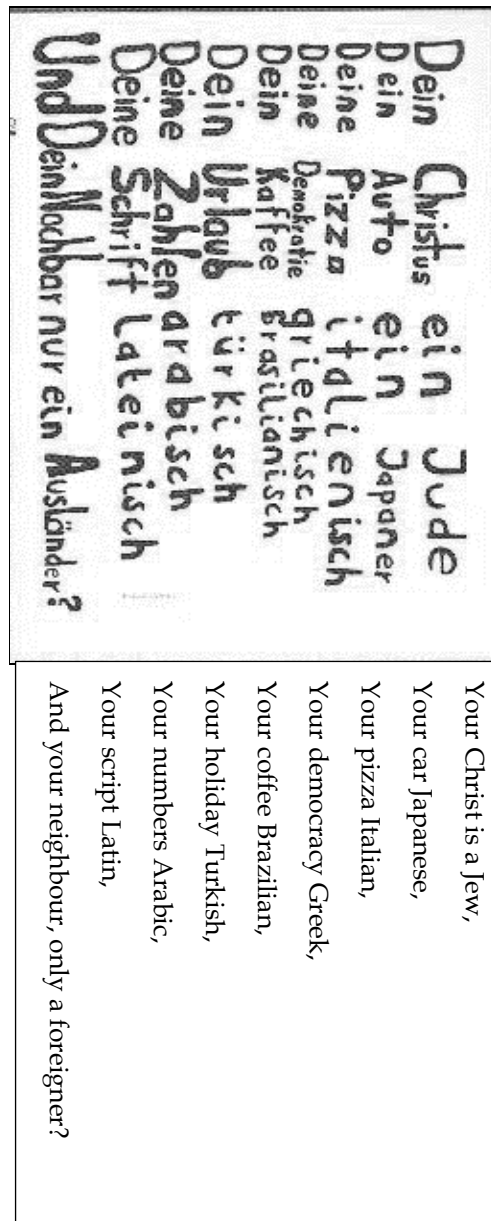 Dein Christus ein Jude
Dein Auto ein Japaner
Deine Pizza italienisch
Deine Demokratie griechisch
Dein Kaffee brasilianisch
Dein Urlaub türkisch
Deine Zahlen arabisch
Deine Schrift Lateinisch
Und Dein Nachbar nur ein Ausländer?
Your Christ is a Jew,
Your car Japanese,
Your pizza Italian,
Your democracy Greek,
Your coffee Brazilian,
Your holiday Turkish,
Your numbers Arabic,
Your script Latin,
And your neighbour, only a foreigner?